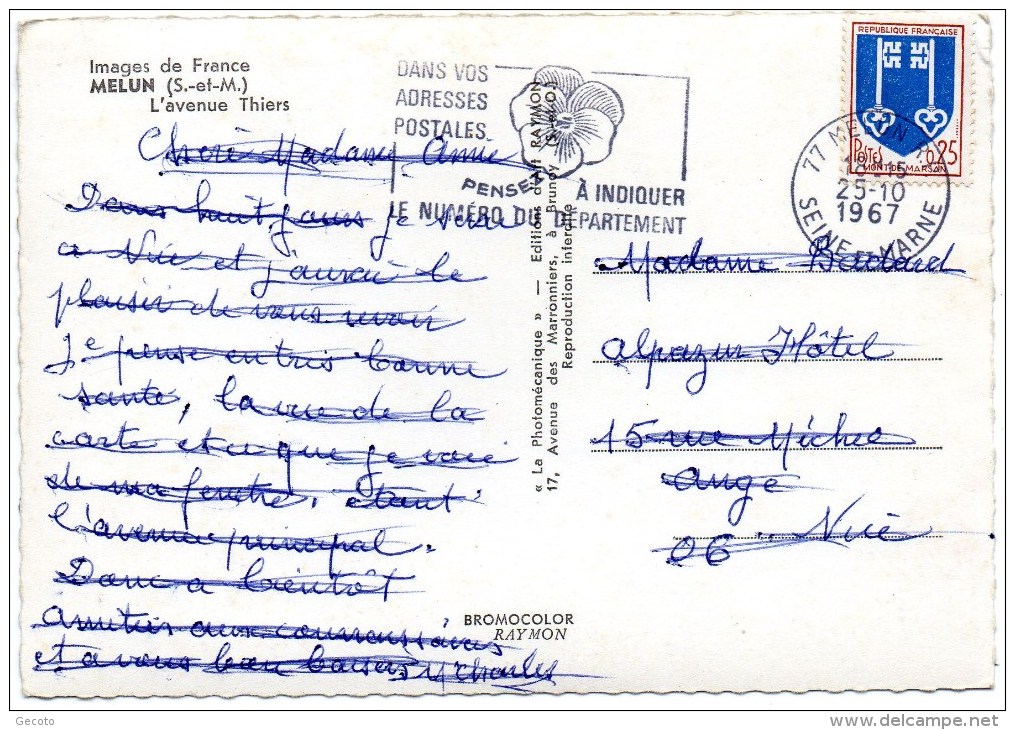 Images de France
MELUN (S.-et-M.)
L'avenue Thiers
DANS VOS
ADRESSES
POSTALES
PENSEZ À INDIQUER
LE NUMÉRO DU DÉPARTEMENT
REPUBLIQUE FRANÇAISE
POSTES 0,25
MONT-DE-MARSAN
77 MELUN
25-10
1967
SEINE ET MARNE
Madame Annie
Dans huit jours je serai
a Nice et j'aurai le
plaisir de vous revoir
Je pense en tres bonne
sante, la vue de la
carte et ce que je vois
de ma fenetre, etant
l'avenue principal.
Donc a bientôt
amities aux
et a vous bon baisers Charles
« La Photomécanique » — Editions d'Art RAYMON
17, Avenue des Marronniers, à Brunoy (S.-et-O.)
Reproduction interdite
Madame
alpazur Hôtel
15 rue Michel
ange
06 Nice
BROMOCOLOR
RAYMON
Gecoto
www.delcampe.net